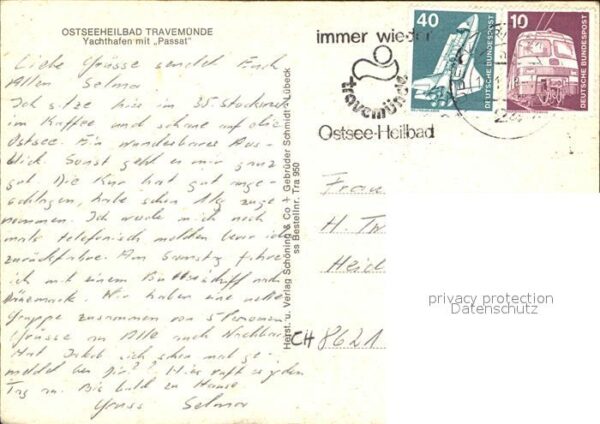 OSTSEEHEILBAD TRAVEMÜNDE
Yachthafen mit „Passat"
Liebe Grüsse sendet Euch
Allen Selma
Ich sitze hier im 35. Stockwerk
im Kaffee und schaue auf die
Ostsee. Ein wunderbarer Aus-
blick. Sonst geht es mir ganz
gut. Die Kur hat gut ange-
schlagen, habe schon 1kg zuge-
nommen. Ich werde mich noch
mals telefonisch melden bevor ich
zurückfahre. Am Samstag fahre
ich mit einem Butterschiff nach
Dänemark. Wir haben eine nette
Gruppe zusammen von 5 Personen.
Grüsse an Alle auch Nachbar
Hat sich schon mal ge-
meldet bei Dir? Hier ruft es jeden
Tag an. Bis bald zu Hause
Gruss Selma
Herst. u. Verlag Schöning & Co + Gebrüder Schmidt - Lübeck
ss Bestellnr. Tra 950
immer wieder
travemünde
Ostsee-Heilbad
40
DEUTSCHE BUNDESPOST
10
DEUTSCHE BUNDESPOST
Frau
H. Tw
Heid
CH 8621
privacy protection
Datenschutz